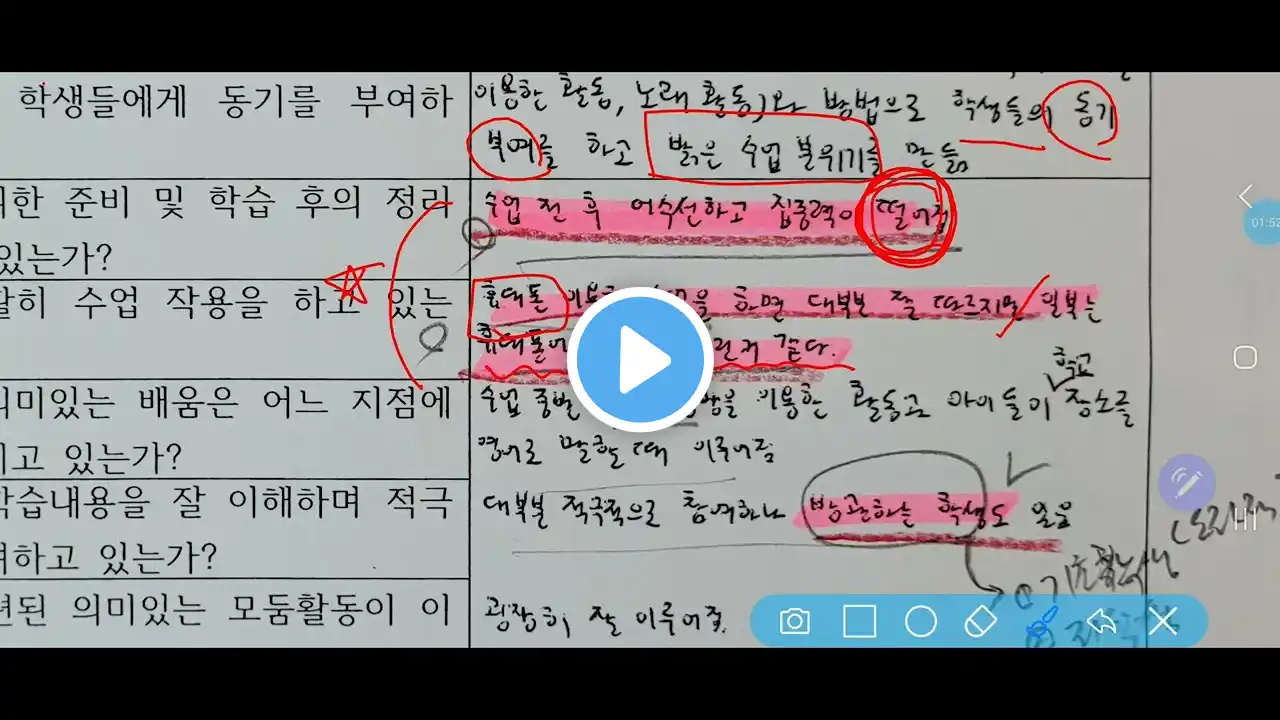 학생들에게 동기를 부여하
이용한 활동, 노래 활동)의 방법으로 학생들의 동기
부여를 하고 밝은 수업 분위기를 만듦
위한 준비 및 학습 후의 정리
있는가?
수업 전 후 어수선하고 집중력이 떨어짐
활히 수업 작용을 하고 있는
휴대폰 하면 대부분 잘 따르지만 일부는
휴대폰 같다.
의미있는 배움은 어느 지점에
지고 있는가?
학교
수업 중반 이용한 활동과 아이들이 장소를
영어로 말할 때 이루어짐
학습내용을 잘 이해하며 적극
여하고 있는가?
대부분 적극적으로 참여하나 방관하는 학생도 있음
련된 의미있는 모둠활동이 이
굉장히 잘 이루어짐.
01:52